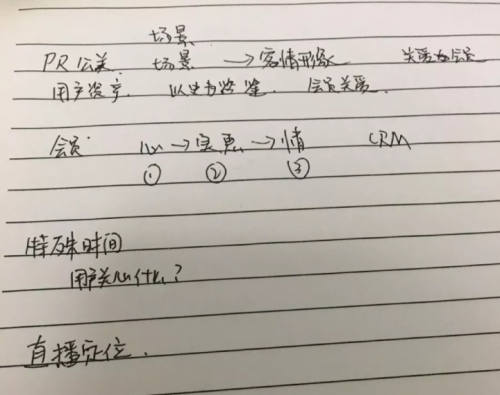 场景
PR公关 场景 → 客情形象 关爱
用户资产 以史为鉴. 会员关爱.
会员. 心 → 实惠 → 情 CRM
① ② ③
特殊时间
用户关心什么?
直播定位.